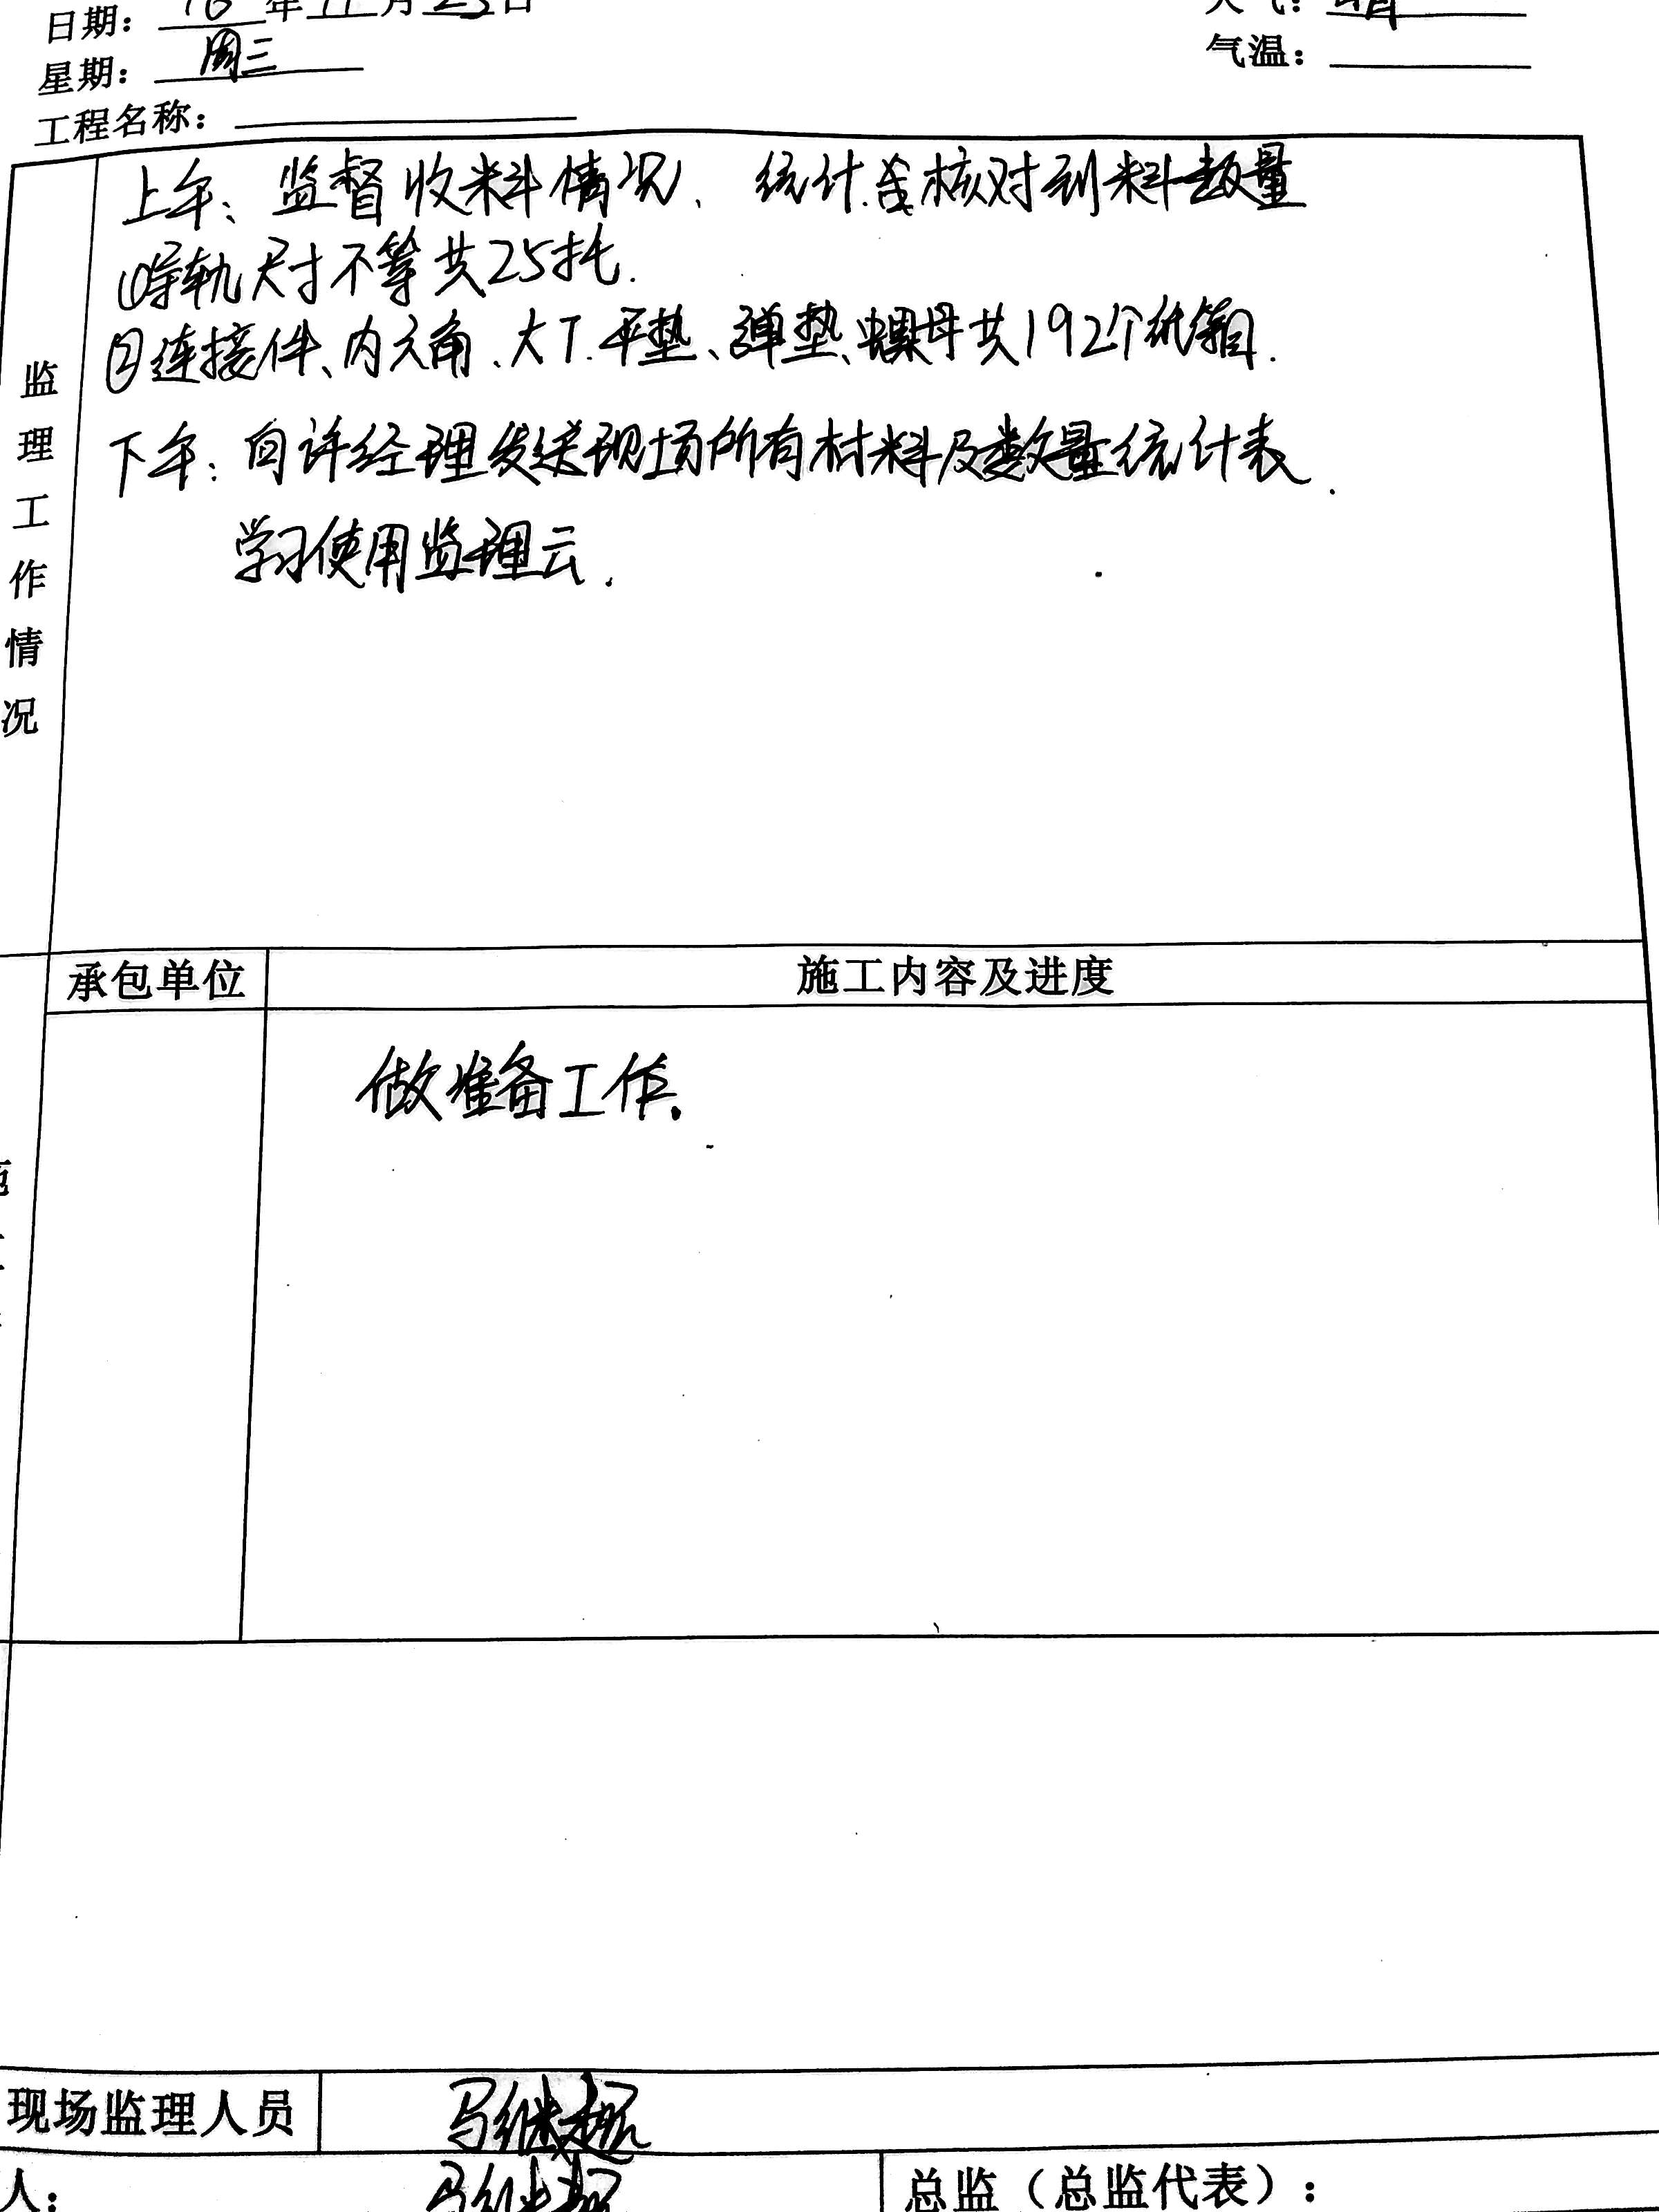 日期：16年11月23日 天气：晴
星期：周三 气温：
工程名称：
监理工作情况
上午：监督收料情况、统计.核对到料数量
①导轨尺寸不等共25托.
②连接件、内六角、大T.平垫、弹垫、螺母共192个纸箱.
下午：向许经理发送现场所有材料及数量统计表.
学习使用监理云.
承包单位 施工内容及进度
做准备工作.
现场监理人员 马继超
人： 马继超 总监（总监代表）：